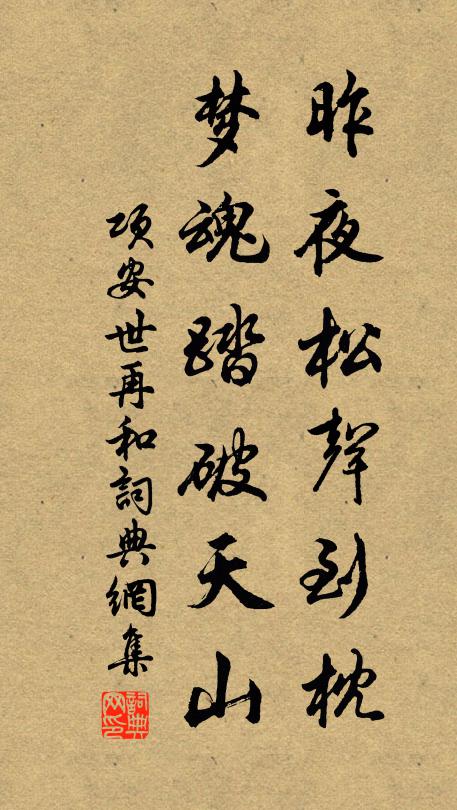 昨夜松聲到枕
梦魂踏破天山
项安世再和詞典網集
詞典网印